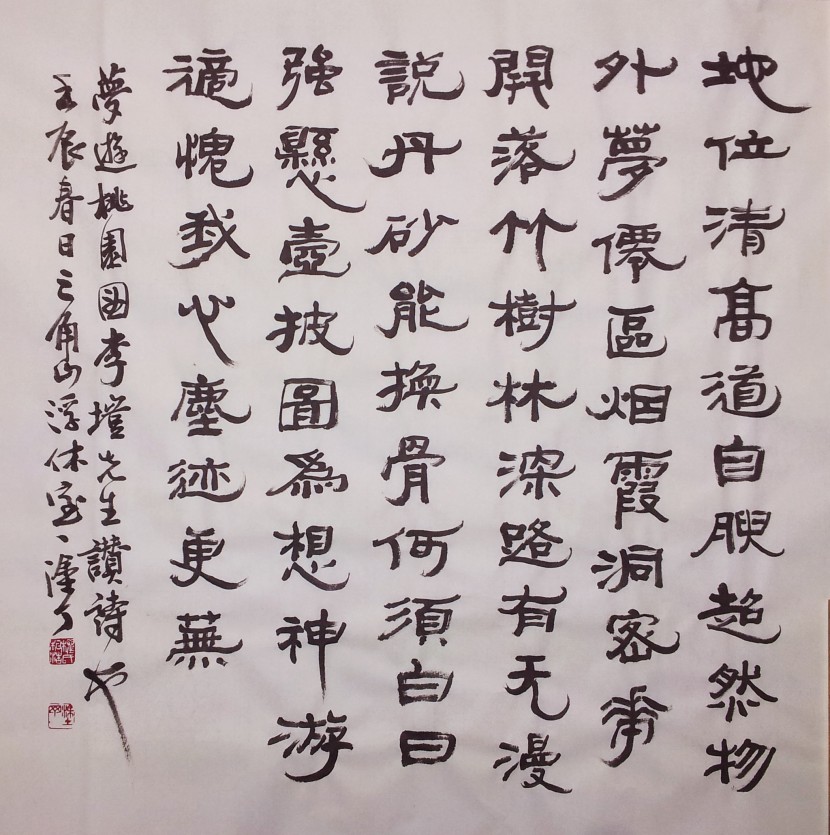 地位清高道自腴超然物
外夢僊區烟霞洞密華
開落竹樹林深路有无漫
說丹砂能換骨何須白日
强懸壺披圖爲想神游
適愧我心塵迹更蕪
夢遊桃園圖李塏先生讚詩也
壬辰春日三角山浮休室